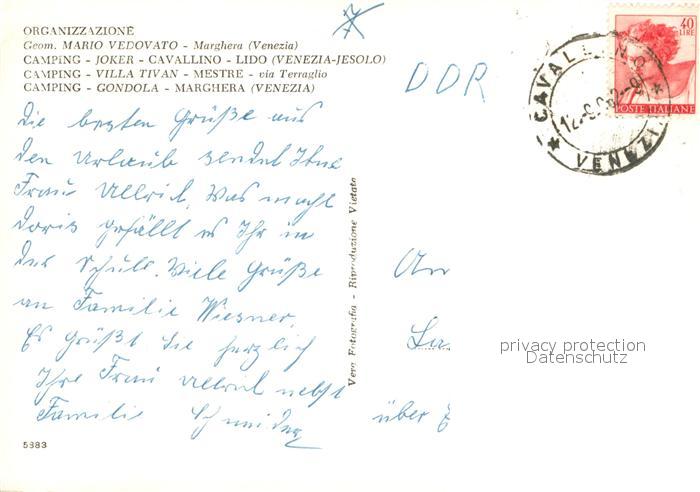 ORGANIZZAZIONE
Geom. MARIO VEDOVATO - Marghera (Venezia)
CAMPiNG - JOKER - CAVALLINO - LIDO (VENEZIA-JESOLO)
CAMPiNG - VILLA TIVAN - MESTRE - via Terraglio
CAMPiNG - GONDOLA - MARGHERA (VENEZIA)
DDR
40
LIRE
POSTE ITALIANE
CAVALLINO
VENEZIA
Die besten Grüße aus
den Urlaub sendet Ihne
Frau Ullrich. Was macht
Doris gefällt es Ihr in
der Schule. Viele Grüße
an Familie Wiesner.
Es grüßt Sie herzlich
Ihre Frau Ullrich nebst
Familie Schneider
5383
Vera Fotografia - Riproduzione Vietata
An
über
privacy protection
Datenschutz